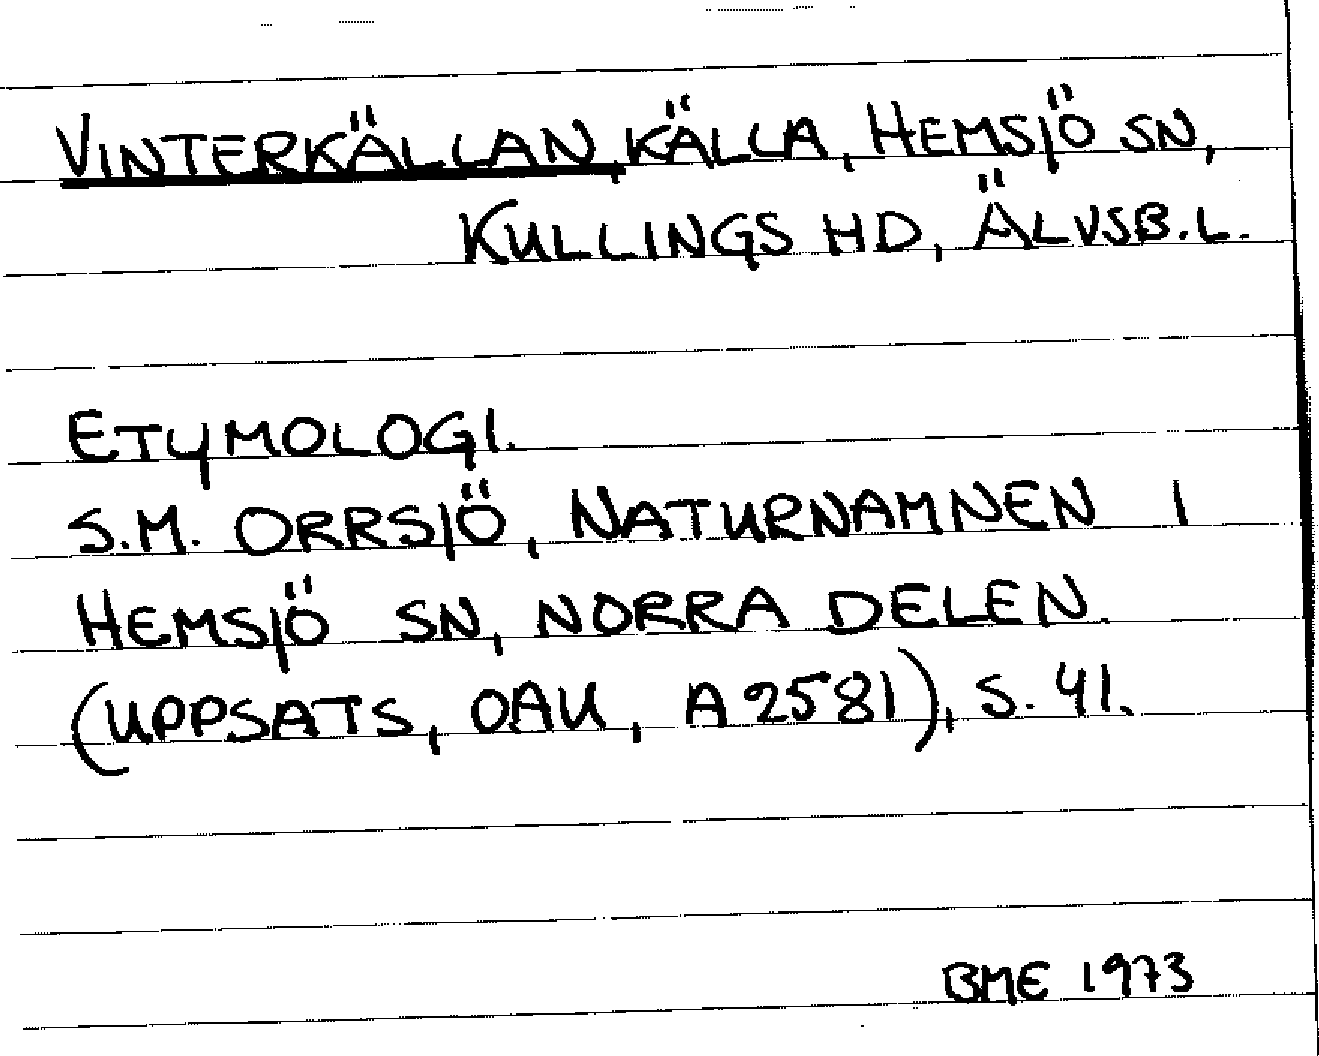 VINTERKÄLLAN, KÄLLA, HEMSJÖ SN,
KULLINGS HD, ÄLVSB.L.
ETYMOLOGI.
S.M. ORRSJÖ, NATURNAMNEN I
HEMSJÖ SN, NORRA DELEN.
(UPPSATS, OAU, A 2581), S. 41.
BME 1973